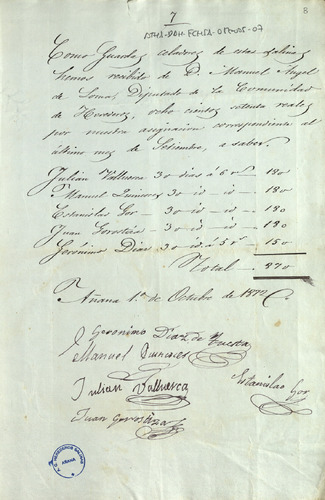 7
8
ATHA-DAH-FCHSA-
Como Guardas celadores de estas Salinas
hemos recibido de D. Manuel Angel
de Soma, Diputado de la Comunidad
de Herederos, ocho cientos setenta reales
por nuestra asignacion correspondiente al
último mes de Setiembre, a saber.
Julian Valluerca 30 dias á 6 rs. 180
Manuel Quincoces 30 - id - id - 180
Estanislao Gor - 30 - id - id - 180
Juan - 30 - id - id - 180
Geronimo Diaz 30 - id á 5 rs - 150
Total 870
Añana 1º de Octubre de 1872
Geronimo Diaz de Tuesta
Manuel Quincoces
Julian Valluerca
Estanislao Gor
Juan Gorostiza
AÑANA